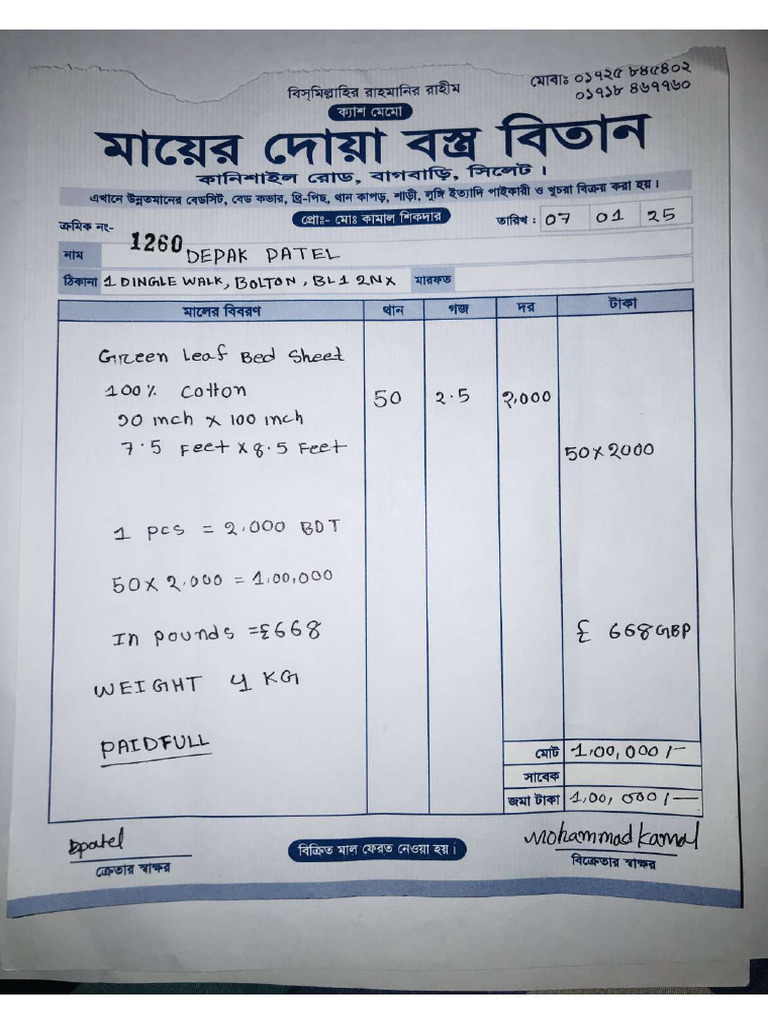 বিস্‌মিল্লাহির রাহমানির রাহীম
মোবাঃ ০১৭২৫ ৮৪৫৪০২
০১৭১৮ ৪৬৭৭৬০
ক্যাশ মেমো
মায়ের দোয়া বস্ত্র বিতান
কানিশাইল রোড, বাগবাড়ি, সিলেট।
এখানে উন্নতমানের বেডসিট, বেড কভার, থ্রি-পিছ, থান কাপড়, শাড়ী, লুঙ্গি ইত্যাদি পাইকারী ও খুচরা বিক্রয় করা হয়।
ক্রমিক নং- 1260
প্রোঃ- মোঃ কামাল শিকদার
তারিখ : 07 01 25
নাম DEPAK PATEL
ঠিকানা 1 DINGLE WALK, BOLTON, BL1 2NX মারফত
মালের বিবরণ থান গজ দর টাকা
Green Leaf Bed Sheet
100% Cotton 50 2.5 2,000
90 inch x 100 inch
7.5 Feet x 8.5 Feet 50 x 2000
1 pcs = 2,000 BDT
50 x 2,000 = 1,00,000
In pounds = £668 £ 668 GBP
WEIGHT 4 KG
PAIDFULL
মোট 1,00,000/-
সাবেক
জমা টাকা 1,00,000/-
Dpatel
Mohammad Kamal
ক্রেতার স্বাক্ষর
বিক্রিত মাল ফেরত নেওয়া হয়।
বিক্রেতার স্বাক্ষর